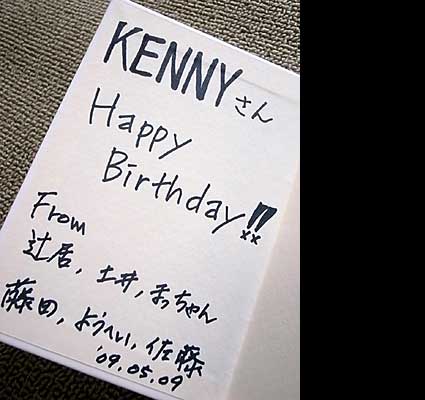 KENNYさん
Happy
Birthday!!
From
辻居, 土井, まっちゃん
藤田, ようへい, 佐藤
'09.05.09